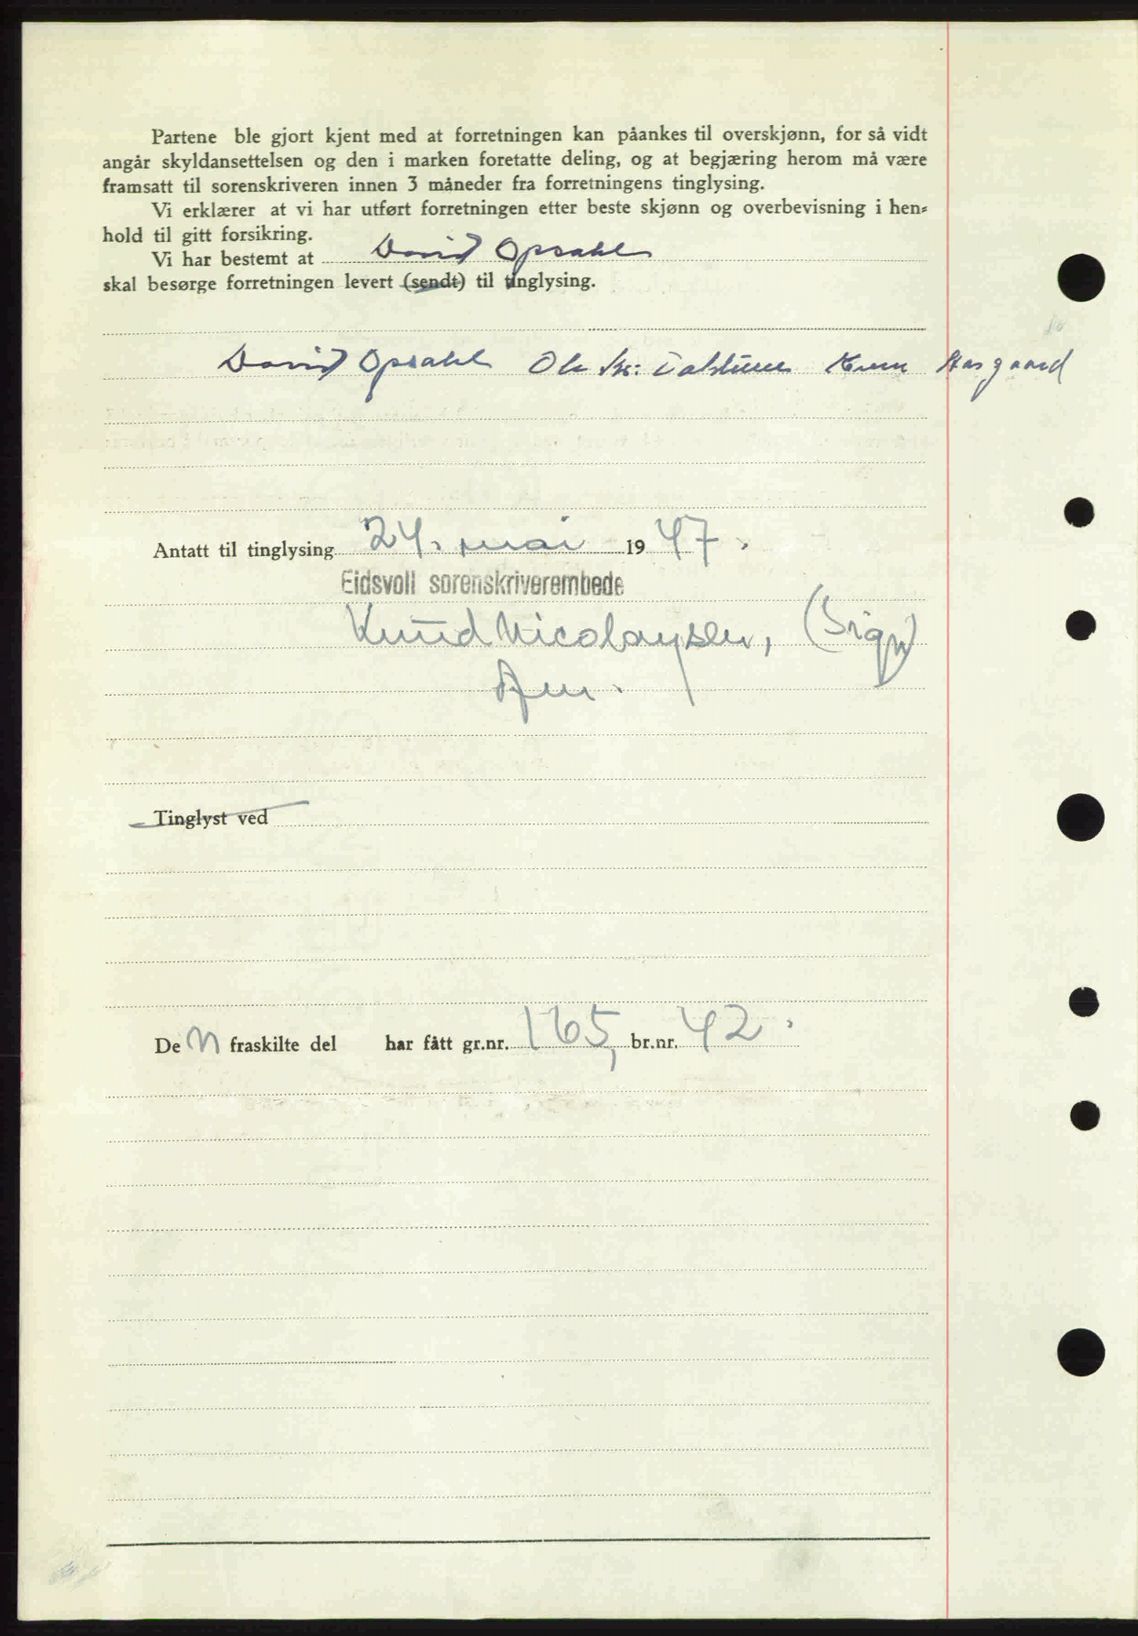 Partene ble gjort kjent med at forretningen kan påankes til overskjønn, for så vidt
angår skyldansettelsen og den i marken foretatte deling, og at begjæring herom må være
framsatt til sorenskriveren innen 3 måneder fra forretningens tinglysing.
Vi erklærer at vi har utført forretningen etter beste skjønn og overbevisning i hen-
hold til gitt forsikring.
Vi har bestemt at David Opsahl
skal besørge forretningen levert (sendt) til tinglysing.
David Opsahl Ole Kr: Aasgaard
Antatt til tinglysing 24. mai 1947.
Eidsvoll sorenskriverembede
Knud Nicolaysen, (Sign)
Tinglyst ved
De n fraskilte del har fått gr.nr. 165, br.nr. 42.